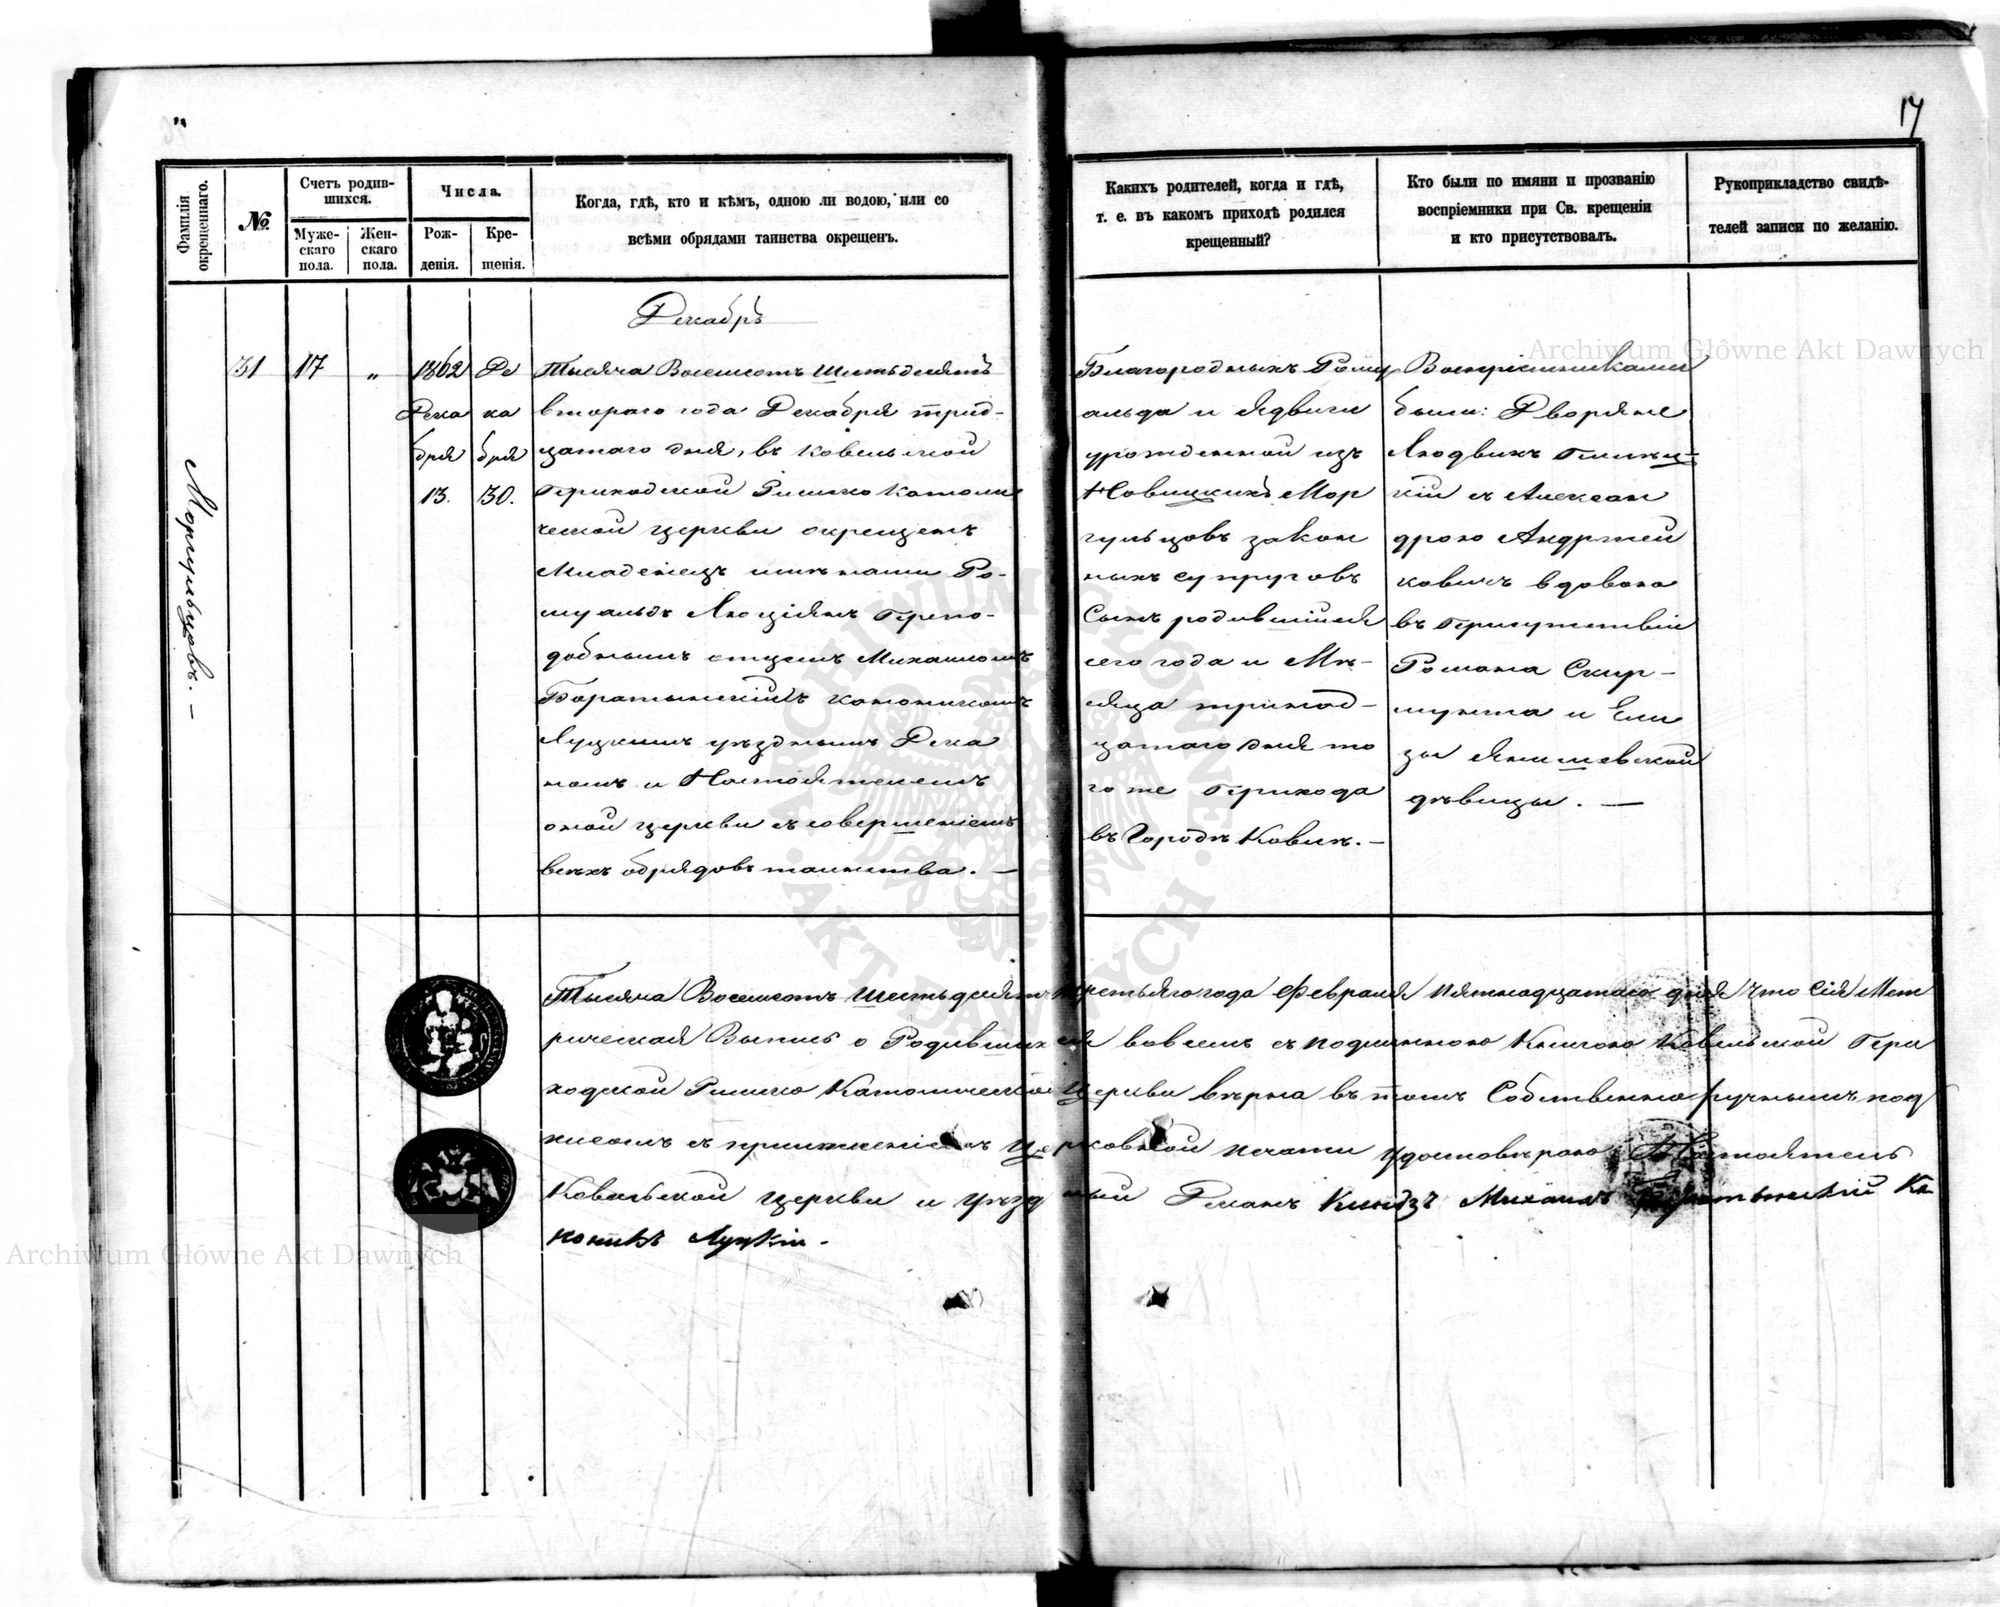 17
Фамилія окрещеннаго.
№.
Счетъ родив-
шихся.
Муже-
скаго
пола.
Жен-
скаго
пола.
Числа.
Рож-
денія.
Кре-
щенія.
Когда, гдѣ, кто и кѣмъ, одною ли водою, или со
всѣми обрядами таинства окрещенъ.
Какихъ родителей, когда и гдѣ,
т. е. въ какомъ приходѣ родился
крещенный?
Кто были по имяни и прозванію
воспріемники при Св. крещеніи
и кто присутствовалъ.
Рукоприкладство свидѣ-
телей записи по желанію.
Моргульцовъ. —
31
17
„
1862
Дека
бря
13.
Де
ка
бря
30.
Декабрь
Тысяча Восемсотъ Шестьдесятъ
втораго года Декабря трид-
цатаго дня, въ Ковельской
Приходской Римско Католи
ческой церкви окрещенъ
Младенецъ имѣнами Ро-
муальдъ Люціянъ Препо-
добнымъ отцемъ Михаиломъ
Боратынскимъ каноникомъ
Луцкимъ уѣзднымъ Дека
номъ и Настоятелемъ
оной церкви съ совершеніемъ
всѣхъ обрядовъ таинства. —
Благородныхъ Рому
альда и Ядвиги
урожденной изъ
Новицкихъ Мор
гульцовъ закон
ныхъ супруговъ
Сынъ родившійся
сего года и Мѣ-
сяца тринад-
цатаго дня то
го же Прихода
въ Городѣ Ковлѣ. —
Воспріемниками
были: Дворяне
Людвикъ
кій съ Алексан
дрою Андржей
ковичъ вдовою
въ Присутствіи
Романа Скир-
мунта и Ели
зы Янишевской
дѣвицы. —
Тысяча Восемсотъ Шестьдесятъ третьяго года Февраля пятнадцатаго дня Что Сія Мет
рическая Выпись о Родившихся вовсемъ съ подлинною Книгою Ковельской При
ходской Римско Католической Церкви вѣрна въ томъ Собственноручнымъ под
писомъ съ приложеніемъ церковной печати удостовѣряю Настоятель
Ковельской Церкви и уѣздный Деканъ Ксендзъ Михаилъ Боратынскій Ка
ноникъ Луцкій. -
Archiwum Główne Akt Dawnych
Archiwum Główne Akt Dawnych
ARCHIWUM GŁÓWNE
AKT DAWNYCH